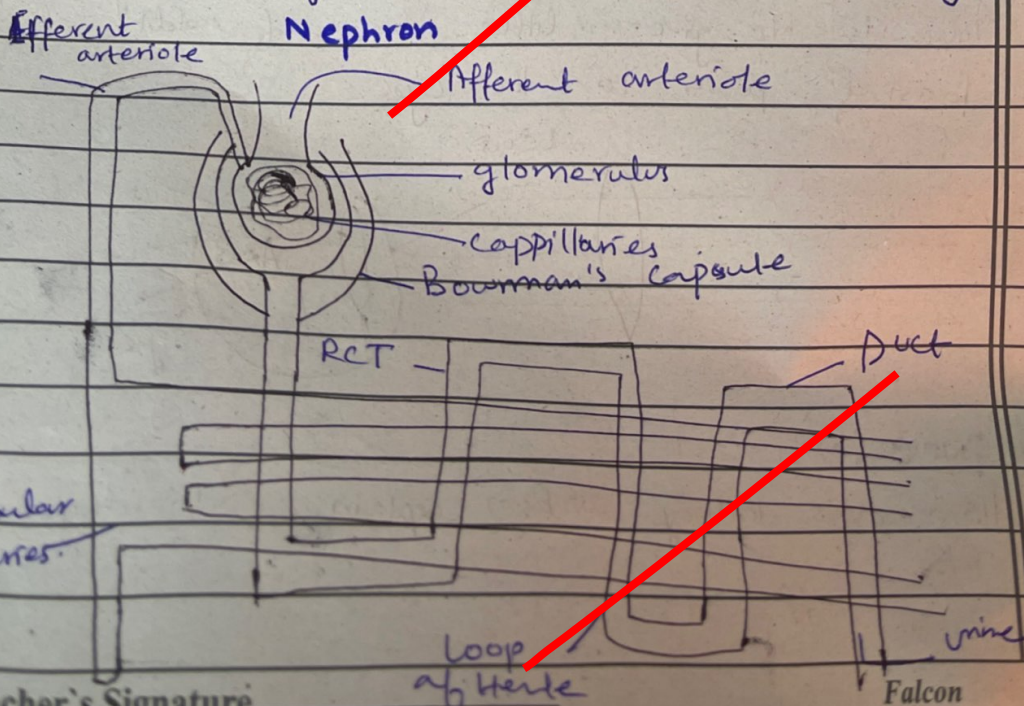 Efferent
arteriole
Nephron
Afferent arteriole
glomerulus
Cappillaries
Bowman's capsule
RCT
Duct
ular
ries.
Loop
of Henle
urine
cher's Signature
Falcon